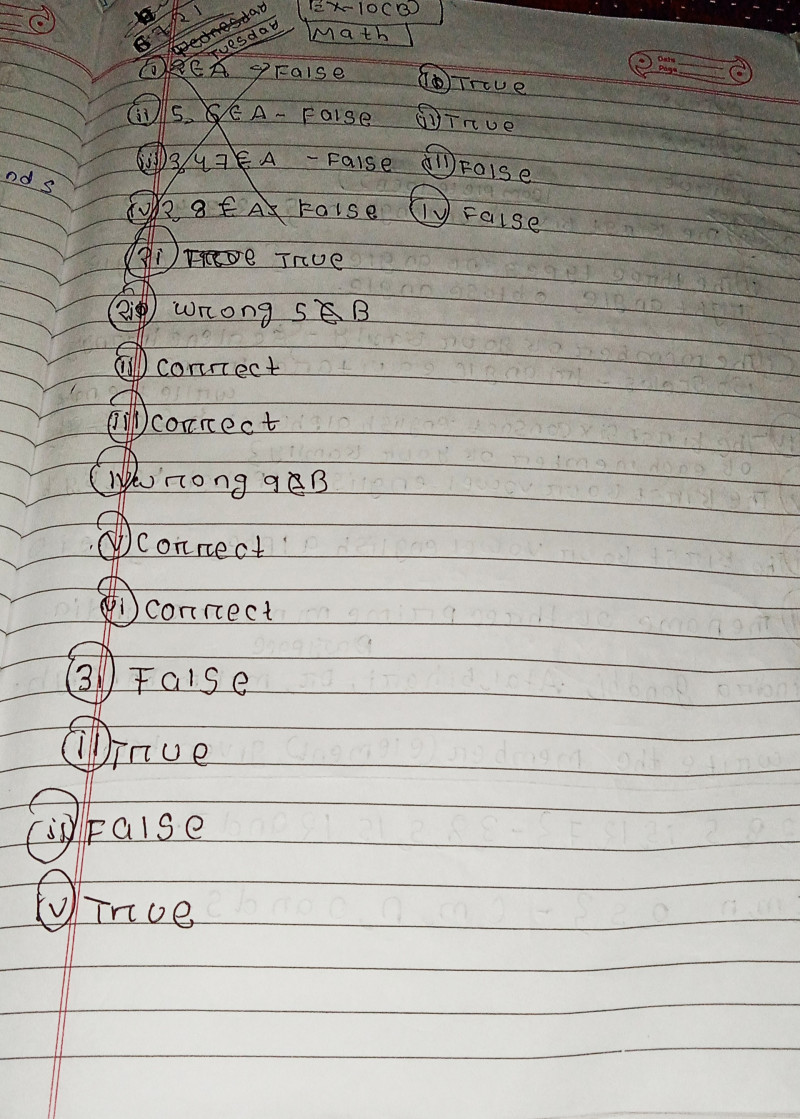 Ex-10(B)
Wednesday
Tuesday
Math
Date
Page
(i) 2 ∈ A → False (i) True
(ii) 5, 6 ∈ A - False (ii) True
(iii) 3, 4 7 ∈ A - False (iii) False
(iv) 2, 8 ∈ A - False (iv) False
True
wrong 5 ∉ B
(ii) Correct
(iii) correct
(iv) wrong 9 ∉ B
(v) correct
(vi) correct
3i False
(ii) True
(iii) False
(v) True
nd s